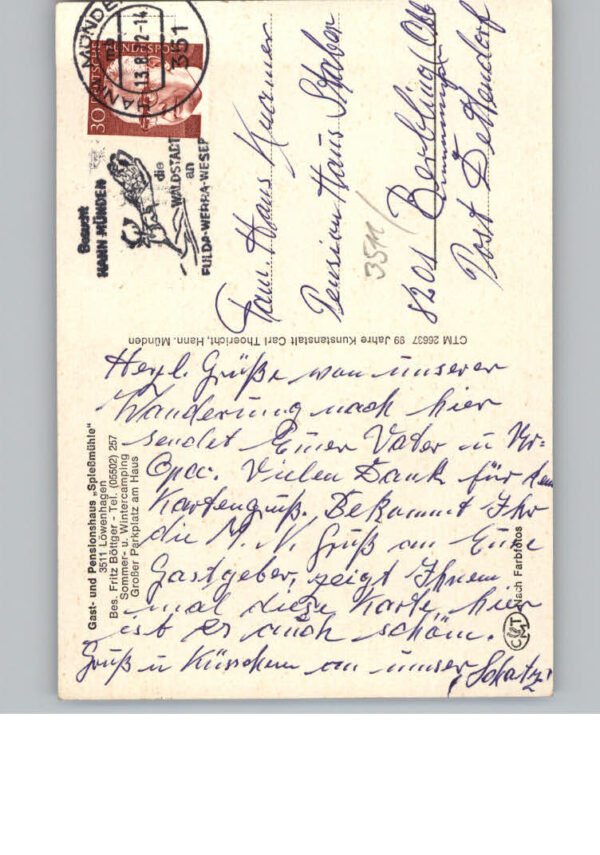 HANN. MÜNDEN
3511
13.8.
2-14
DEUTSCHE BUNDESPOST
30
Besucht
HANN MÜNDEN
die
WALDSTADT
an
FULDA-WERRA-WESER
Fam. Haus Kramer
Pension Haus Staber
8201 Berbling/Obb
Post Dettendorf
3511/
CTM 26637 99 Jahre Kunstanstalt Carl Thoericht, Hann. Münden
Gast- und Pensionshaus „Spießmühle"
3511 Löwenhagen
Bes. Fritz Böttger - Tel. (05502) 257
Sommer- u. Wintercamping
Großer Parkplatz am Haus
Herzl. Grüße von unserer
Wanderung nach hier
sendet Euer Vater u Ur-
Opa. Vielen Dank für den
Kartengruß. Bekommt Ihr
die M. N. Gruß an Eure
Gastgeber, zeigt Ihnen
mal diese Karte, hier
ist es auch schön.
Gruß u Küsschen an unser
"Schatz"
CTM
Nach Farbfotos